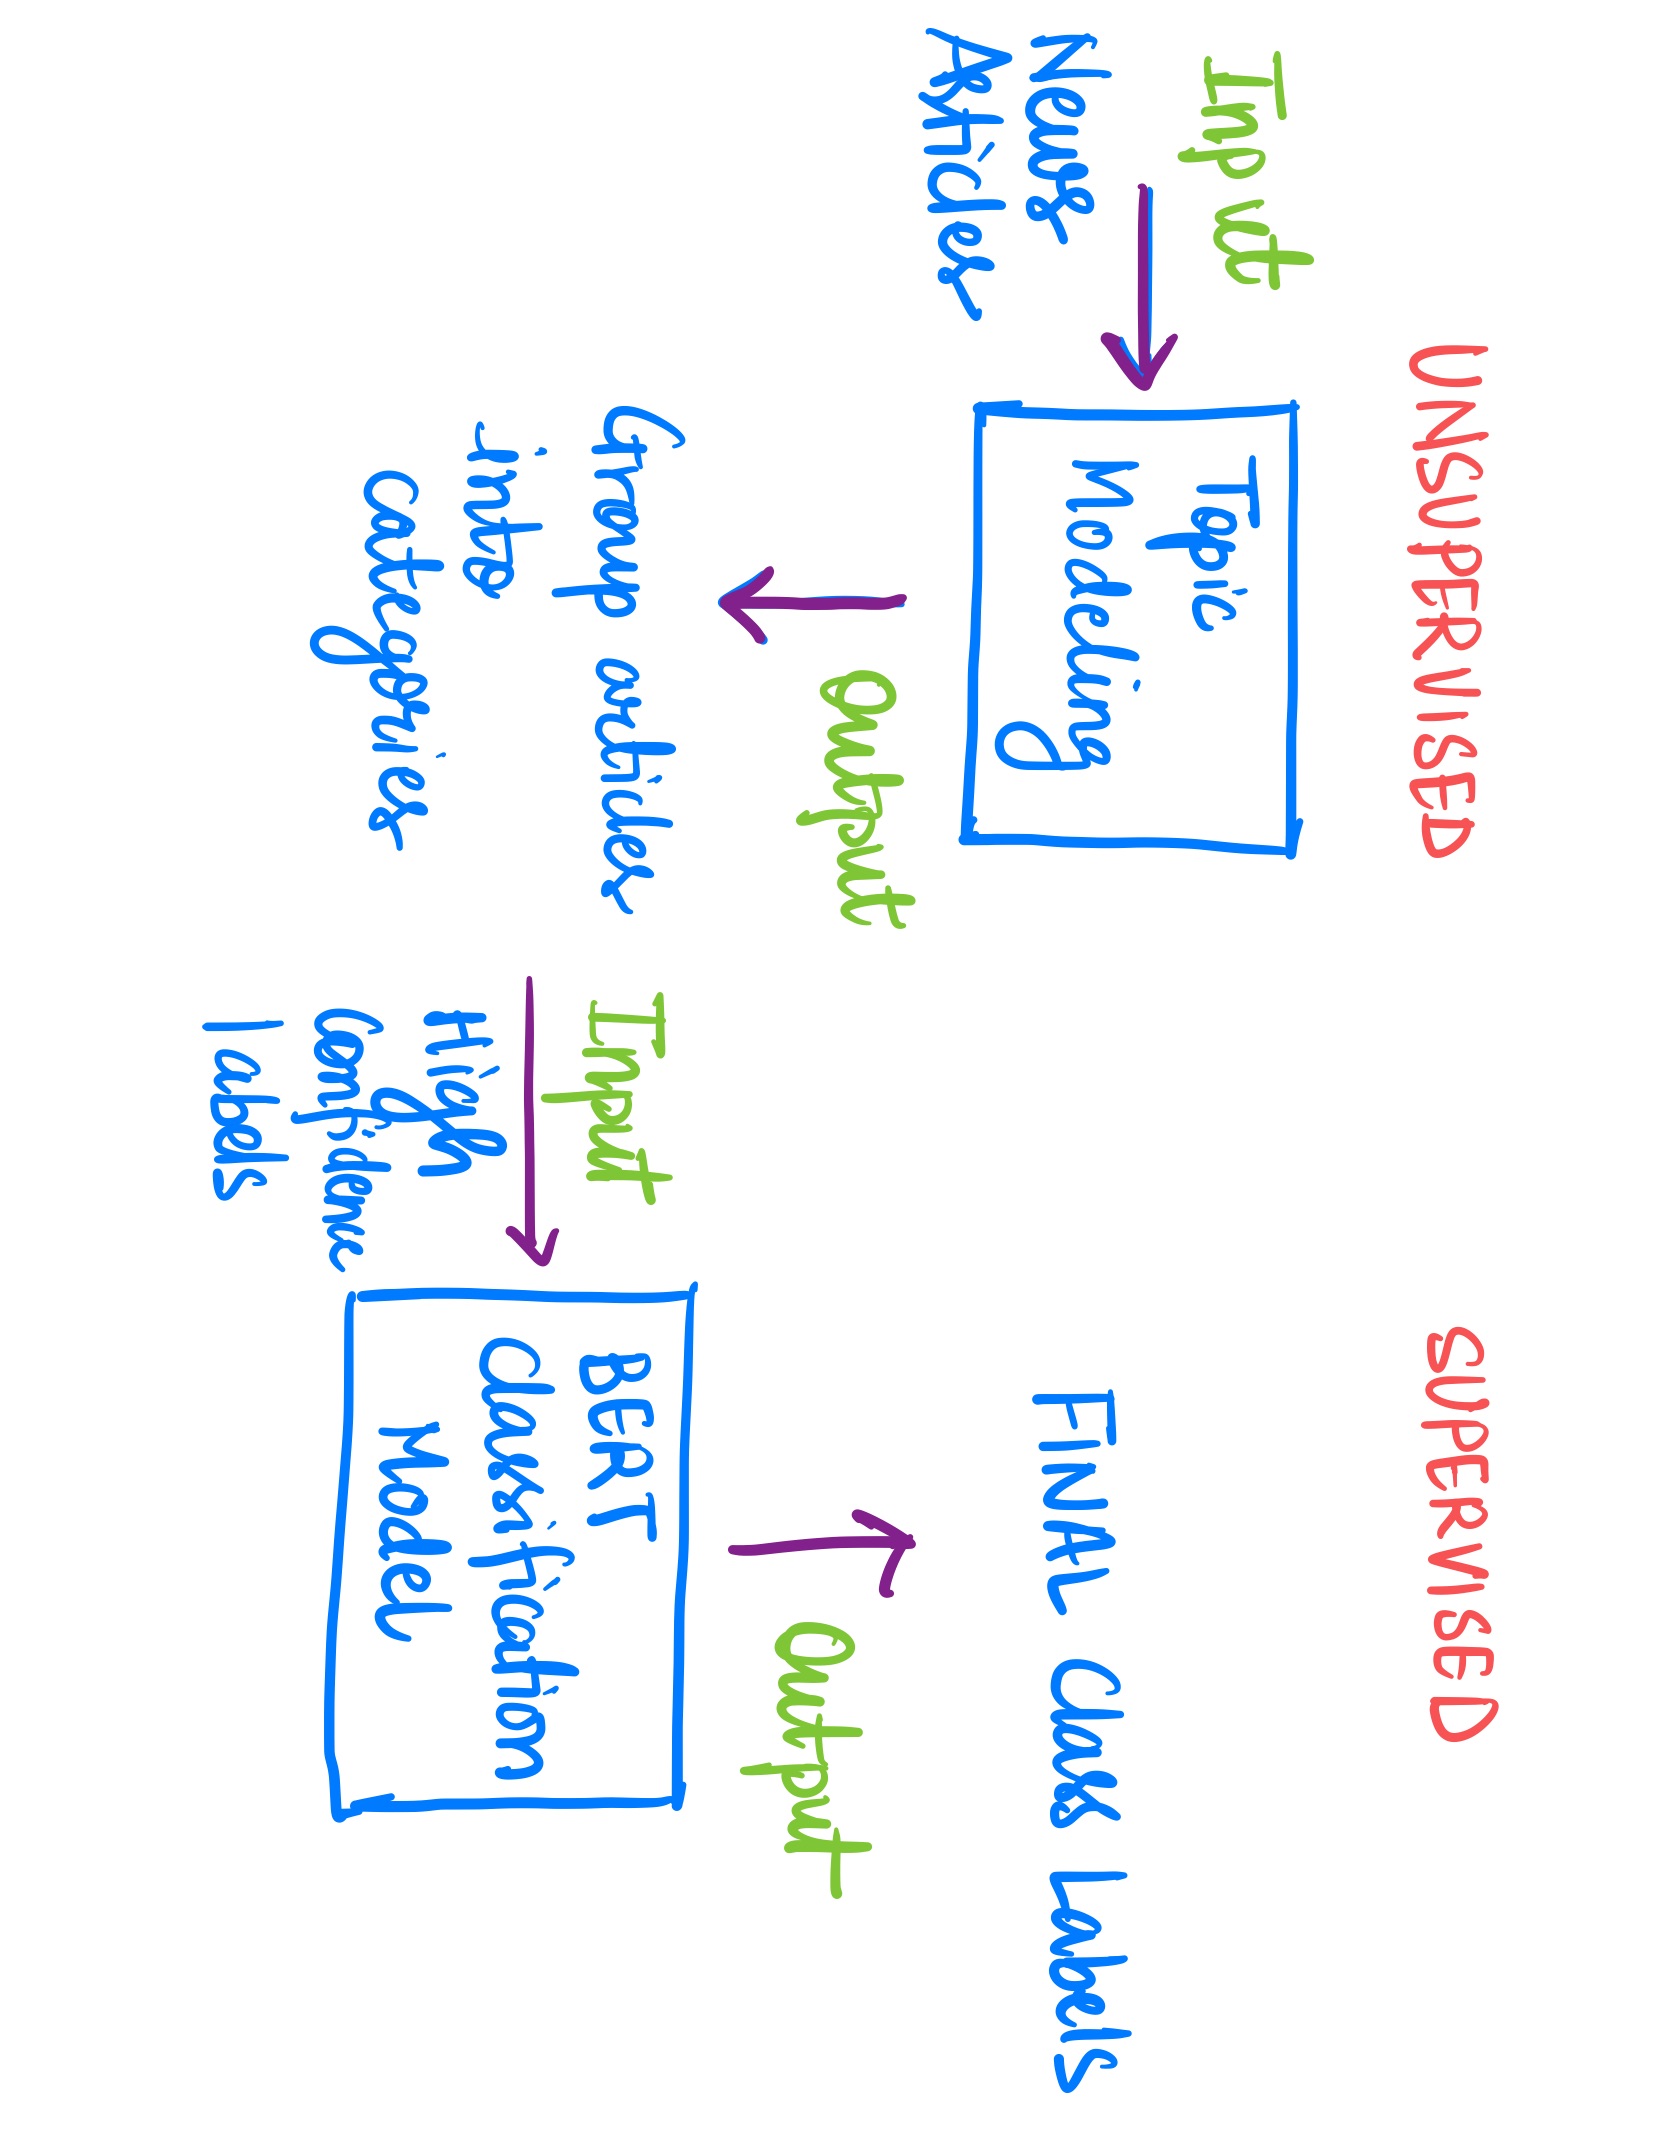 UNSUPERVISED
SUPERVISED
Input
News
Articles
Topic
Modeling
Output
Group articles
into
categories
Input
High
Confidence
labels
BERT
Classification
Model
Output
FINAL Class Labels